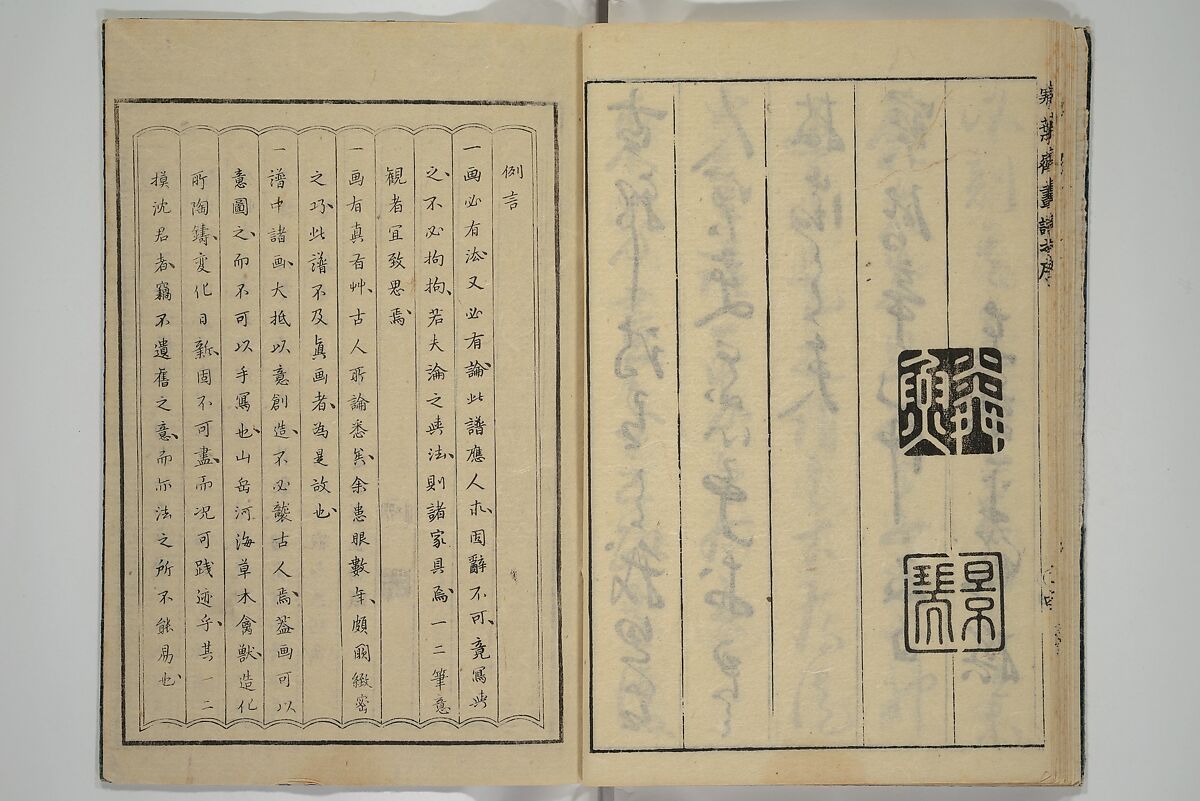 寒葉齋畫譜序
例言
一画必有法又必有論此譜應人求固辭不可竟寫与
之不必拘拘若夫論之与法則諸家具焉一二筆意
観者宜致思焉
一画有真有艸古人所論悉矣余患眼數年頗厭緻密
之巧此譜不及眞画者為是故也
一譜中諸画大抵以意創造不必襲古人焉蓋画可以
意圖之而不可以手寫也山岳河海草木禽獣造化
所陶鑄変化日新固不可盡而况可践迹乎其一二
摸沈君者竊不遺舊之意而亦法之所不能易也